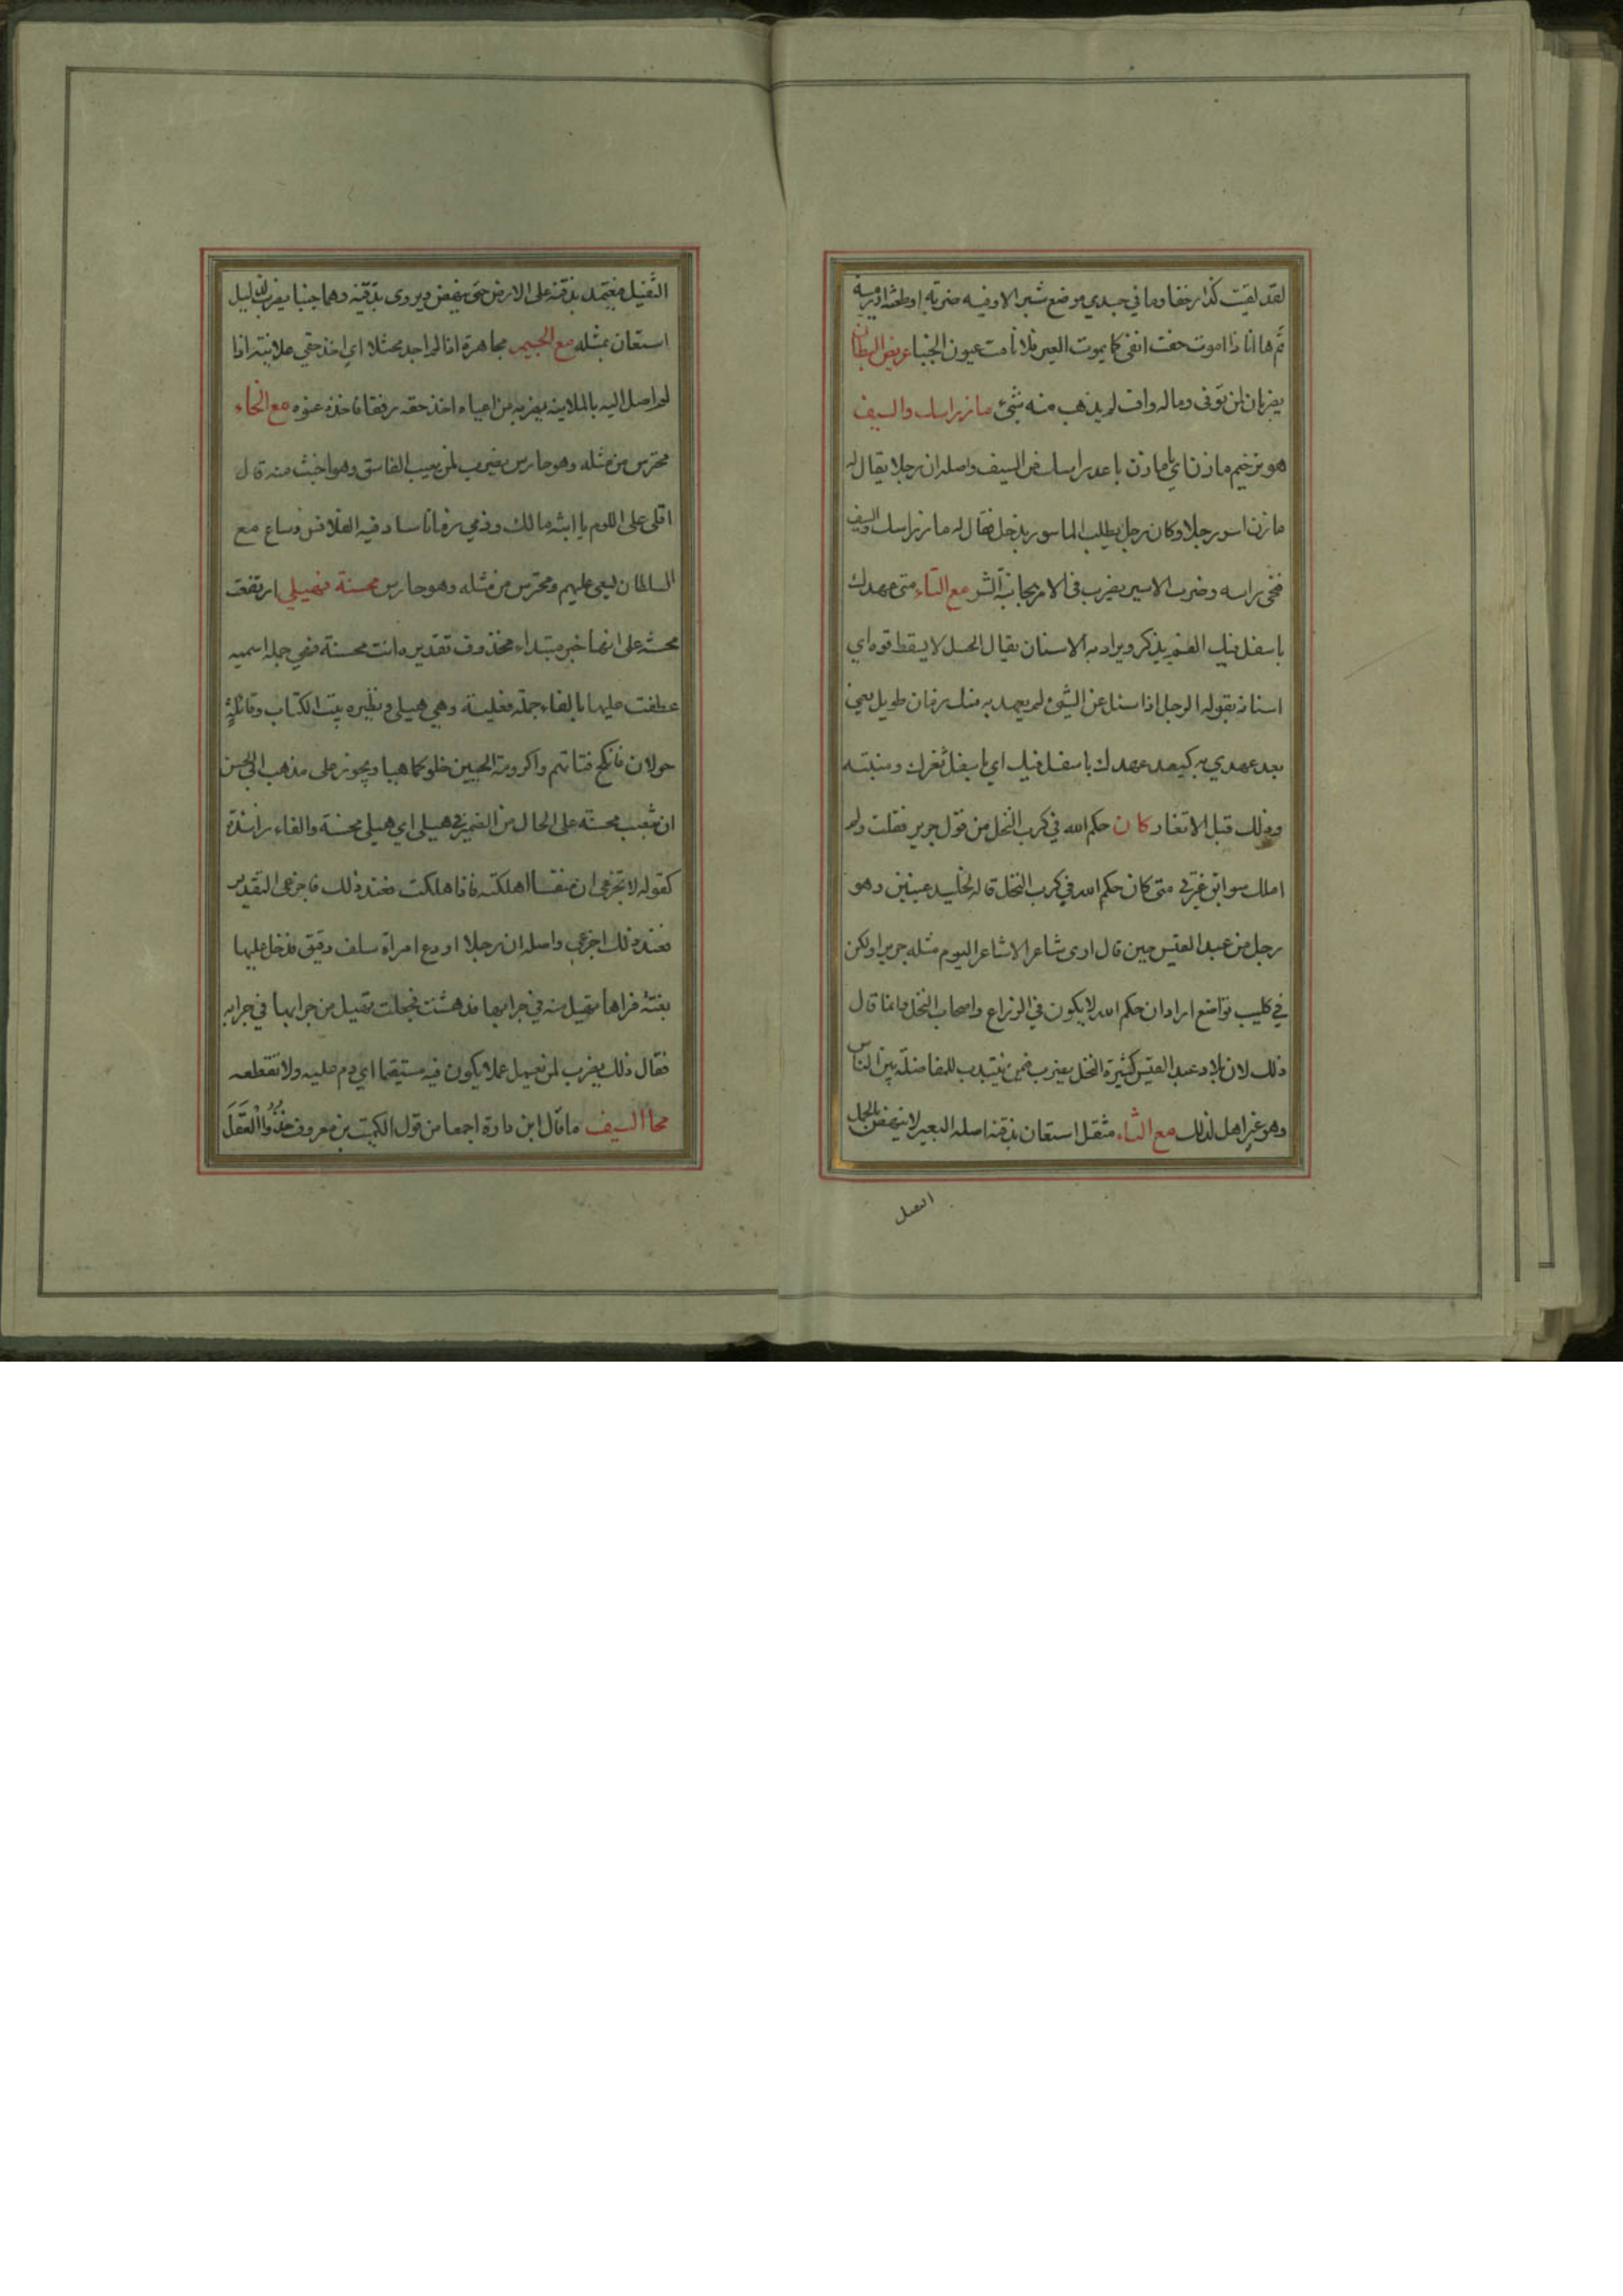 لقد لقيت كذا زحفا وما في جسدي موضع شبر الا وفيه ضربة او طعنة او رمية
ثم ها انا ذا اموت حتف انفي كما يموت العير فلا نامت عيون الجبنا عريض البطان
يضربان لمن توفى وماله وافر لم يذهب منه شئ ماز راسك والسيف
هو ترخيم مازن اي يا مازن باعد راسك من السيف واصله ان رجلا يقال له
مازن اسر رجلا وكان رجل يطلب الماسور بذحل فقال له ماز راسك والسيف
فنحى راسه وضرب الاسير يضرب في الامر بمجانبة الشر مع التاء متى عهدك
باسفل فيك الفم يذكر ويراد به الاسنان يقال الحسل لا يسقط فوه اي
اسنانه يقوله الرجل اذا سئل عن الشئ لم يعهد به منك زمان طويل يعني
بعد عهدي به كبعد عهدك باسفل فيك اي باسفل ثغرك ومنبته
وذلك قبل الاتغار كان حكم الله في كرب النخل من قول جرير فقلت ولم
املك سوابق عبرتي متى كان حكم الله في كرب النخل قاله لخليد عينين وهو
رجل من عبد القيس حين قال ارى شاعرا لا شاعر اليوم مثله جرير ولكن
في كليب تواضع اراد ان حكم الله لا يكون في الزراع واصحاب النخل وانما قال
ذلك لان بلاد عبد القيس كثيرة النخل يضرب فمن ينتدب للمفاضلة بين الناس
وهو غير اهل لذلك مع الثاء مثقل استعان بذقنه اصله البعير لا ينهض بالحمل
الثقيل
الثقيل فيعتمد بذقنه على الارض حتى ينهض ويروى بدفيه وهما جنبا يضرب لذليل
استعان بمثله مع الجيم مجاهرة اذا لم اجد مختلا اي اخذ حقي علانية اذا
لم اصل اليه بالملاينة يضربه من اعياه اخذ حقه رفقا فاخذه عنوه مع الحاء
محترس من مثله وهو حارس يضرب لمن يعيب الفاسق وهو اخبث منه قال
اقلي علي اللوم يا ابنة مالك وذمي زمانا ساد فيه الفلافس وساع مع
السلطان ليسعى عليهم ومحترس من مثله وهو حارس محسنة فهيلي ارتفعت
محسنة على انها خبر مبتداء محذوف تقديره انت محسنة فهي جملة اسمية
عطفت عليها بالفاء جملة فعلية وهي هيلي ونظيره بيت الكتاب وقائلة
خولان فانكح فتاتهم واكرومة الحيين خلو كما هيا ويجوز على مذهب ابي الحسن
ان تنصب محسنة على الحال من الضمير في هيلي اي هيلي محسنة والفاء زائدة
كقوله لا تجزعي ان منفسا اهلكته فاذا هلكت فعند ذلك فاجزعي التقدير
فعند ذلك اجزعي واصله ان رجلا اودع امراة سلف دقيق فدخل عليها
بغتة فراها تهيل منه في جرابها فدهشت فجعلت تهيل من جرابها في جرابه
فقال ذلك يضرب لمن يعمل عملا يكون فيه مستقيما اي دم عليه ولا تقطعه
محا السيف ما قال ابن دارة اجمعا من قول الكميت بن معروف خذوا العقل